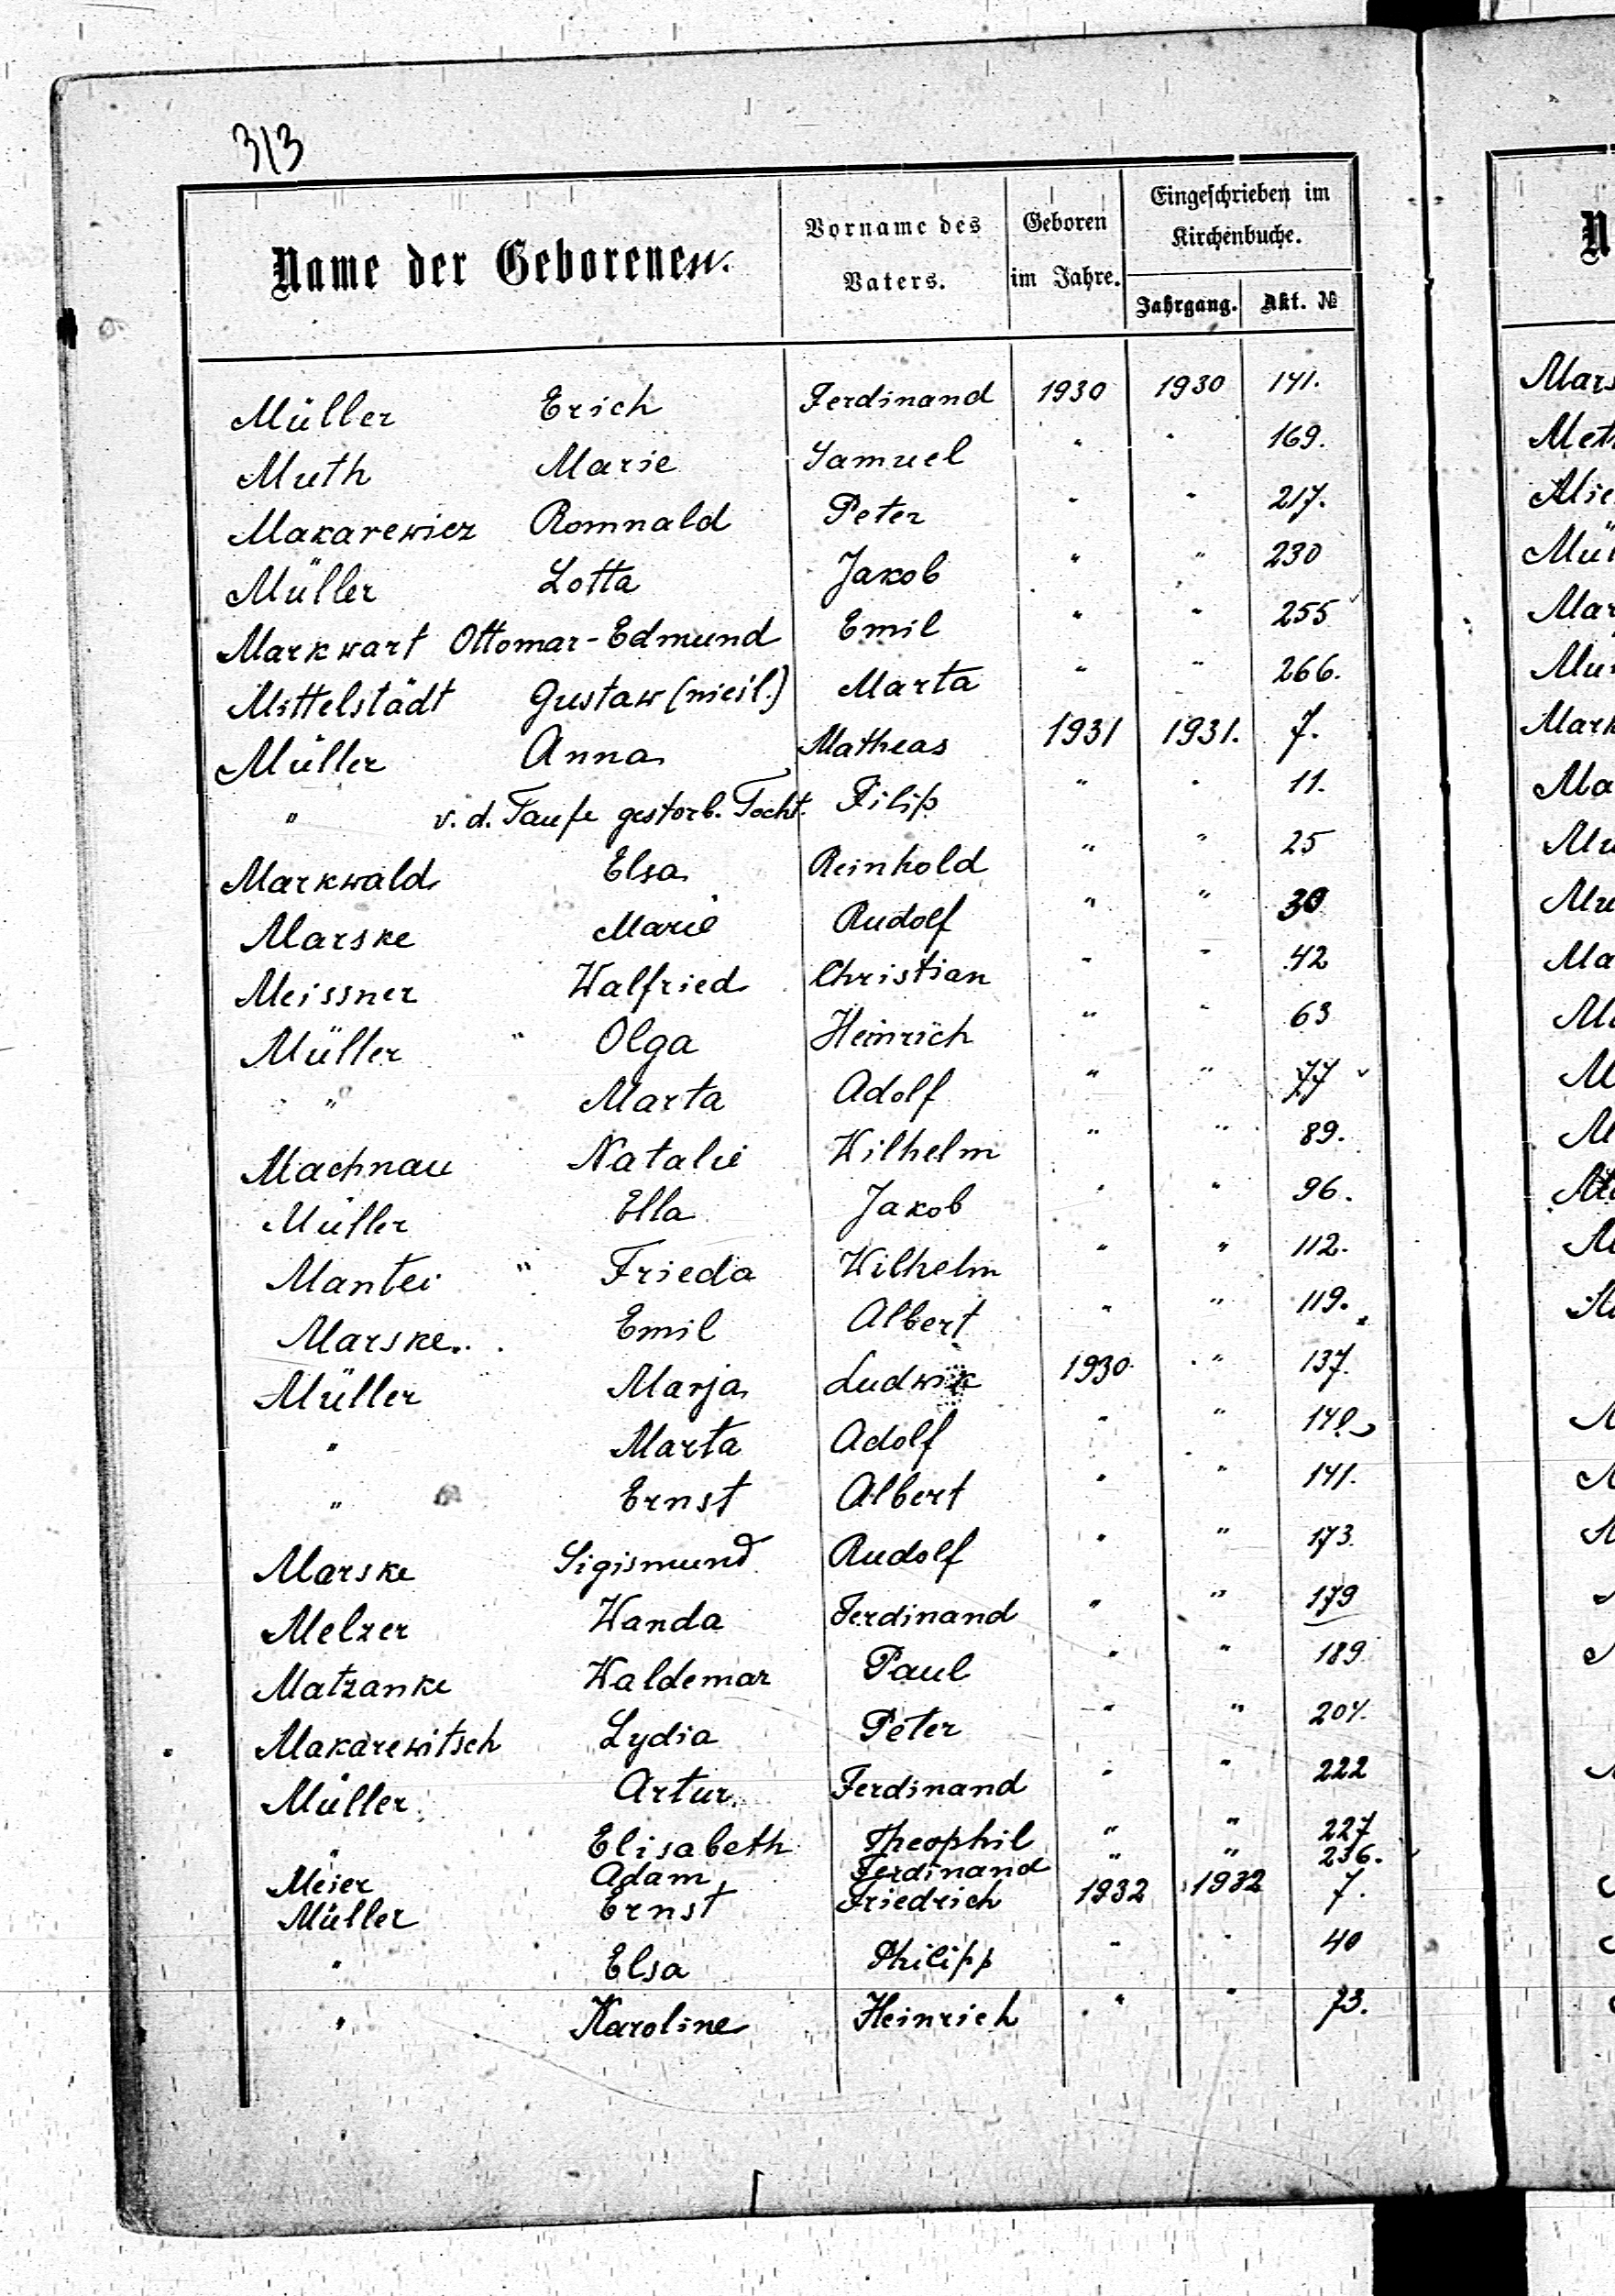 313
Name der Geborenen. Vorname des Vaters. Geboren im Jahre. Eingeschrieben im Kirchenbuche.
Jahrgang. Akt. №
Müller Erich Ferdinand 1930 1930 141.
Muth Marie Samuel " " 169.
Makarewicz Romnald Peter " " 217.
Müller Lotta Jakob " " 230
Markwart Ottomar-Edmund Emil " " 255
Mittelstädt Gustaw Marta " " 266.
Müller Anna Matheas 1931 1931. 7.
" v. d. Taufe gestorb. Tocht. Filip " " 11.
Markwald Elsa Reinhold " " 25
Marske Marie Rudolf " " 30
Meissner Walfried Christian " " 42
Müller " Olga Heinrich " " 63
" Marta Adolf " " 77
Machnau Natalie Wilhelm " " 89.
Müller Ella Jakob " " 96.
Mantei " Frieda Wilhelm " " 112.
Marske. Emil Albert " " 119.
Müller Marja Ludwik 1930 " 137.
" Marta Adolf " "
" Ernst Albert " " 141.
Marske Sigismund Rudolf " " 173.
Melzer Wanda Ferdinand " " 179
Matzanke Waldemar Paul " " 189
Makarewitsch Lydia Peter " "
Müller Artur Ferdinand " " 222
" Elisabeth Theophil " " 227
Meier Adam Ferdinand " " 236.
Müller Ernst Friedrich 1932 1932 7.
" Elsa Philipp " " 40
" Karoline Heinrich " " 73.
N
Mars
Met
Mie
Mül
Mar
Mu
Mark
Ma
Mu
Mu
Ma
M
M
M
M